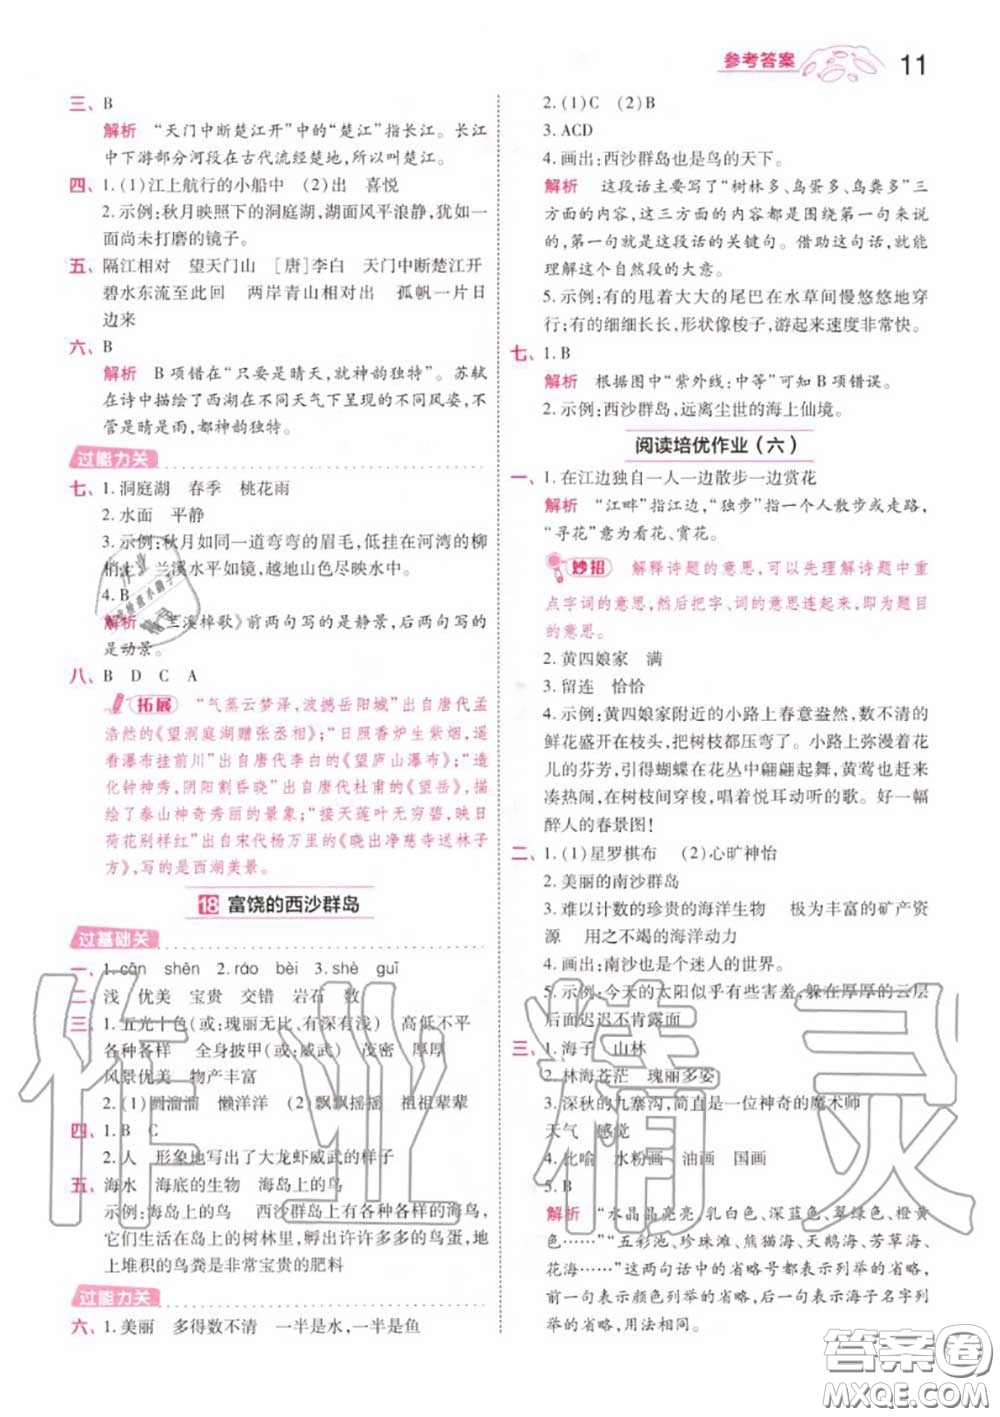 参考答案
11
三、B
解析 “天门中断楚江开”中的“楚江”指长江。长江
中下游部分河段在古代流经楚地,所以叫楚江。
四、1.(1)江上航行的小船中 (2)出 喜悦
2.示例:秋月映照下的洞庭湖,湖面风平浪静,犹如一
面尚未打磨的镜子。
五、隔江相对 望天门山 [唐]李白 天门中断楚江开
碧水东流至此回 两岸青山相对出 孤帆一片日
边来
六、B
解析 B项错在“只要是晴天,就神韵独特”。苏轼
在诗中描绘了西湖在不同天气下呈现的不同风姿,不
管是晴是雨,都神韵独特。
过能力关
七、1.洞庭湖 春季 桃花雨
2.水面 平静
3.示例:秋月如同一道弯弯的眉毛,低挂在河湾的柳
梢上。兰溪水平如镜,越地山色尽映水中。
4.B
解析 《兰溪棹歌》前两句写的是静景,后两句写的
是动景。
八、B D C A
拓展 “气蒸云梦泽,波撼岳阳城”出自唐代孟
浩然的《望洞庭湖赠张丞相》;“日照香炉生紫烟,遥
看瀑布挂前川”出自唐代李白的《望庐山瀑布》;“造
化钟神秀,阴阳割昏晓”出自唐代杜甫的《望岳》,描
写了泰山神奇秀丽的景象;“接天莲叶无穷碧,映日
荷花别样红”出自宋代杨万里的《晓出净慈寺送林子
方》,写的是西湖美景。
18 富饶的西沙群岛
过基础关
一、1.cān shēn 2.ráo bèi 3.shè guī
二、浅 优美 宝贵 交错 岩石 数
三、1.五光十色(或:瑰丽无比、有深有浅) 高低不平
各种各样 全身披甲(或:威武) 茂密 厚厚
风景优美 物产丰富
2.(1)圆溜溜 懒洋洋 (2)飘飘摇摇 祖祖辈辈
四、1.B C
2.人 形象地写出了大龙虾威武的样子
五、海水 海底的生物 海岛上的鸟
示例:海岛上的鸟 西沙群岛上有各种各样的海鸟,
它们生活在岛上的树林里,孵出许许多多的鸟蛋,地
上堆积的鸟粪是非常宝贵的肥料
过能力关
六、1.美丽 多得数不清 一半是水,一半是鱼
2.(1)C (2)B
3.ACD
4.画出:西沙群岛也是鸟的天下。
解析 这段话主要写了“树林多、鸟蛋多、鸟粪多”三
方面的内容,这三方面的内容都是围绕第一句来说
的,第一句就是这段话的关键句。借助这句话,就能
理解这个自然段的大意。
5.示例:有的甩着大大的尾巴在水草间慢悠悠地穿
行;有的细细长长,形状像梭子,游起来速度非常快。
七、1.B
解析 根据图中“紫外线:中等”可知B项错误。
2.示例:西沙群岛,远离尘世的海上仙境。
阅读培优作业(六)
一、1.在江边独自一人一边散步一边赏花
解析 “江畔”指江边,“独步”指一个人散步或走路,
“寻花”意为看花、赏花。
妙招 解释诗题的意思,可以先理解诗题中重
点字词的意思,然后把字、词的意思连起来,即为题目
的意思。
2.黄四娘家 满
3.留连 恰恰
4.示例:黄四娘家附近的小路上春意盎然,数不清的
鲜花盛开在枝头,把树枝都压弯了。小路上弥漫着花
儿的芬芳,引得蝴蝶在花丛中翩翩起舞,黄莺也赶来
凑热闹,在树枝间穿梭,唱着悦耳动听的歌。好一幅
醉人的春景图!
二、1.(1)星罗棋布 (2)心旷神怡
2.美丽的南沙群岛
3.难以计数的珍贵的海洋生物 极为丰富的矿产资
源 用之不竭的海洋动力
4.画出:南沙也是个迷人的世界。
5.示例:今天的太阳似乎有些害羞,躲在厚厚的云层
后面迟迟不肯露面
三、1.海子 山林
2.林海苍茫 瑰丽多姿
3.深秋的九寨沟,简直是一位神奇的魔术师
天气 感觉
4.比喻 水粉画 油画 国画
5.B
解析 “水晶晶亮亮,乳白色、深蓝色、翠绿色、橙黄
色……”“五彩池、珍珠滩、熊猫海、天鹅海、芳草海、
花海……”这两句话中的省略号都表示列举的省略,
前一句为颜色列举的省略,后一句为海子名字列举
的省略,用法相同。
作业精灵
答案圈
MXQE.COM